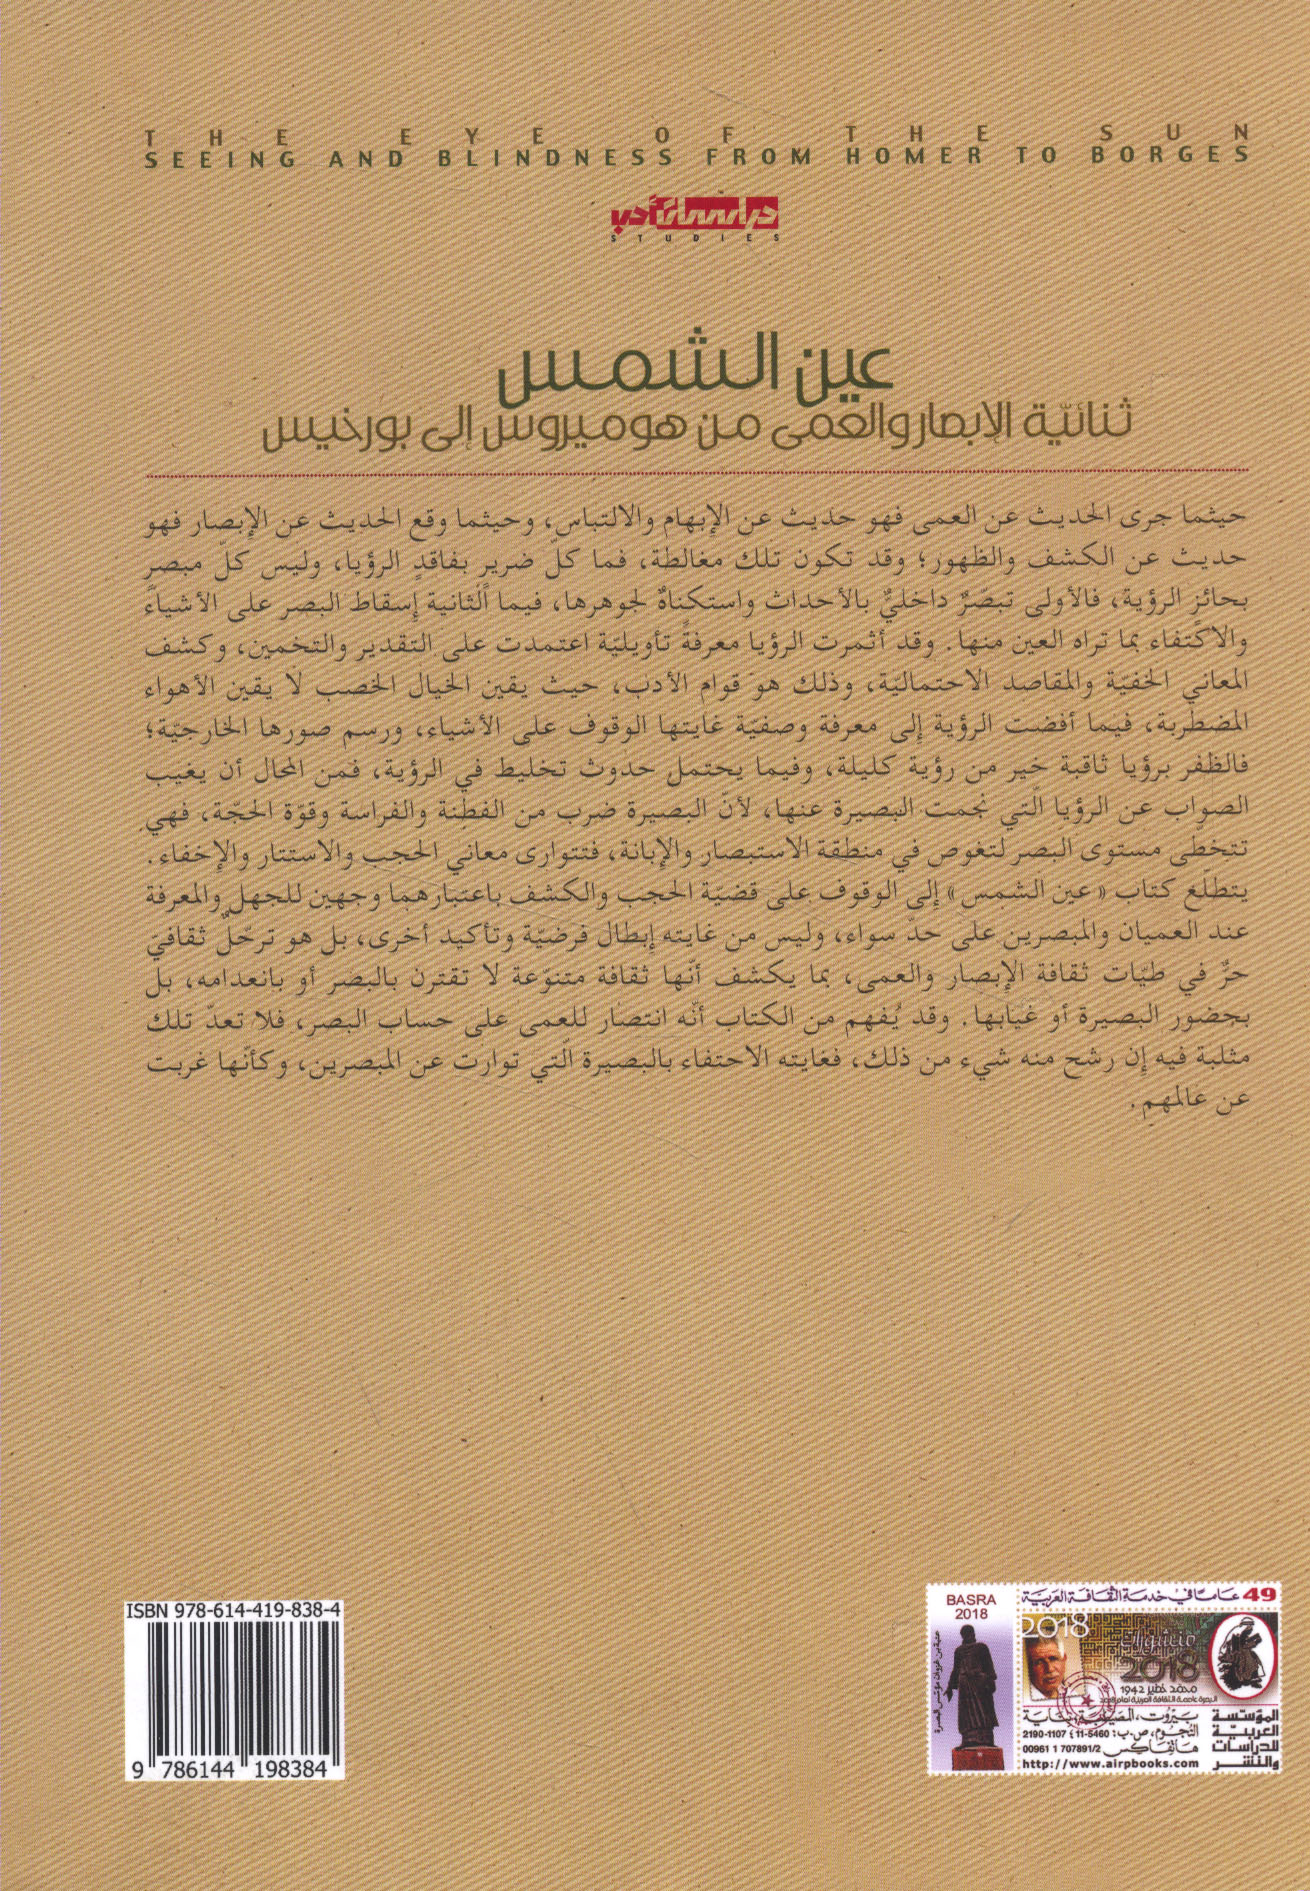 THE EYE OF THE SUN
SEEING AND BLINDNESS FROM HOMER TO BORGES
دراسات أدب
STUDIES
عين الشمس
ثنائيّة الإبصار والعمى من هوميروس إلى بورخيس
حيثما جرى الحديث عن العمى فهو حديث عن الإبهام والالتباس، وحيثما وقع الحديث عن الإبصار فهو
حديث عن الكشف والظهور؛ وقد تكون تلك مغالطة، فما كلّ ضريرٍ بفاقدٍ الرؤيا، وليس كلّ مبصرٍ
بحائزٍ الرؤية، فالأولى تبصّرٌ داخليٌّ بالأحداث واستكناهٌ لجوهرها، فيما الثانية إسقاط البصر على الأشياء
والاكتفاء بما تراه العين منها. وقد أثمرت الرؤيا معرفةً تأويليّة اعتمدت على التقدير والتخمين، وكشف
المعاني الخفيّة والمقاصد الاحتماليّة، وذلك هو قوام الأدب، حيث يقين الخيال الخصب لا يقين الأهواء
المضطربة، فيما أفضت الرؤية إلى معرفة وصفيّة غايتها الوقوف على الأشياء، ورسم صورها الخارجيّة؛
فالظفر برؤيا ثاقبة خير من رؤية كليلة، وفيما يحتمل حدوث تخليط في الرؤية، فمن المحال أن يغيب
الصواب عن الرؤيا الّتي نجمت البصيرة عنها، لأنّ البصيرة ضرب من الفطنة والفراسة وقوّة الحجّة، فهي
تتخطّى مستوى البصر لتغوص في منطقة الاستبصار والإبانة، فتتوارى معاني الحجب والاستتار والإخفاء.
يتطلّع كتاب «عين الشمس» إلى الوقوف على قضيّة الحجب والكشف باعتبارهما وجهين للجهل والمعرفة
عند العميان والمبصرين على حدّ سواء، وليس من غايته إبطال فرضيّة وتأكيد أخرى، بل هو ترحّلٌ ثقافيّ
حرٌّ في طيّات ثقافة الإبصار والعمى، بما يكشف أنّها ثقافة متنوّعة لا تقترن بالبصر أو بانعدامه، بل
بحضور البصيرة أو غيابها. وقد يُفهم من الكتاب أنّه انتصار للعمى على حساب البصر، فلا تعدّ تلك
مثلبة فيه إن رشح منه شيء من ذلك، فغايته الاحتفاء بالبصيرة الّتي توارت عن المبصرين، وكأنّها غربت
عن عالمهم.
ISBN 978-614-419-838-4
9 786144 198384
BASRA
2018
49 عاماً في خدمة الثقافة العربية
2018
منشورات
2018
محمد خضير 1942
المؤسسة
العربية
للدراسات
والنشر
بيروت، المصيطبة، بناية
النجوم، ص.ب: 5460-11 ؛ 1107-2190
هاتفاكس 00961 1 707891/2
http://www.airpbooks.com